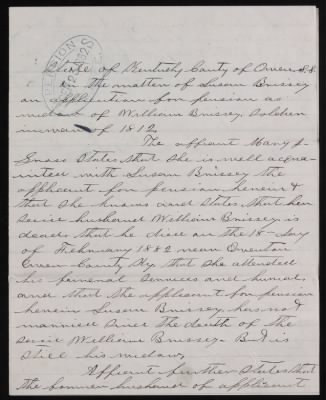 PENSION
State of Kentucky County of Owen S.S.
in the matter of Susan Brissey
an application for pension as
widow of William Brissey Soldier
in war of 1812
The affiant Mary J.
states that she is well acqua
inted with Susan Brissey the
applicant for pension herein &
that she knows and states that her
said husband William Brissey is
dead & that he died on the 18 day
of February 1882 near Owenton
Owen County Ky that she attended
his funeral services and burial
and that the applicant for pension
herein Susan Brissey has not
married since the death of the
said William Brissey But is
still his widow,
Affiant further states that
the former husband of applicant